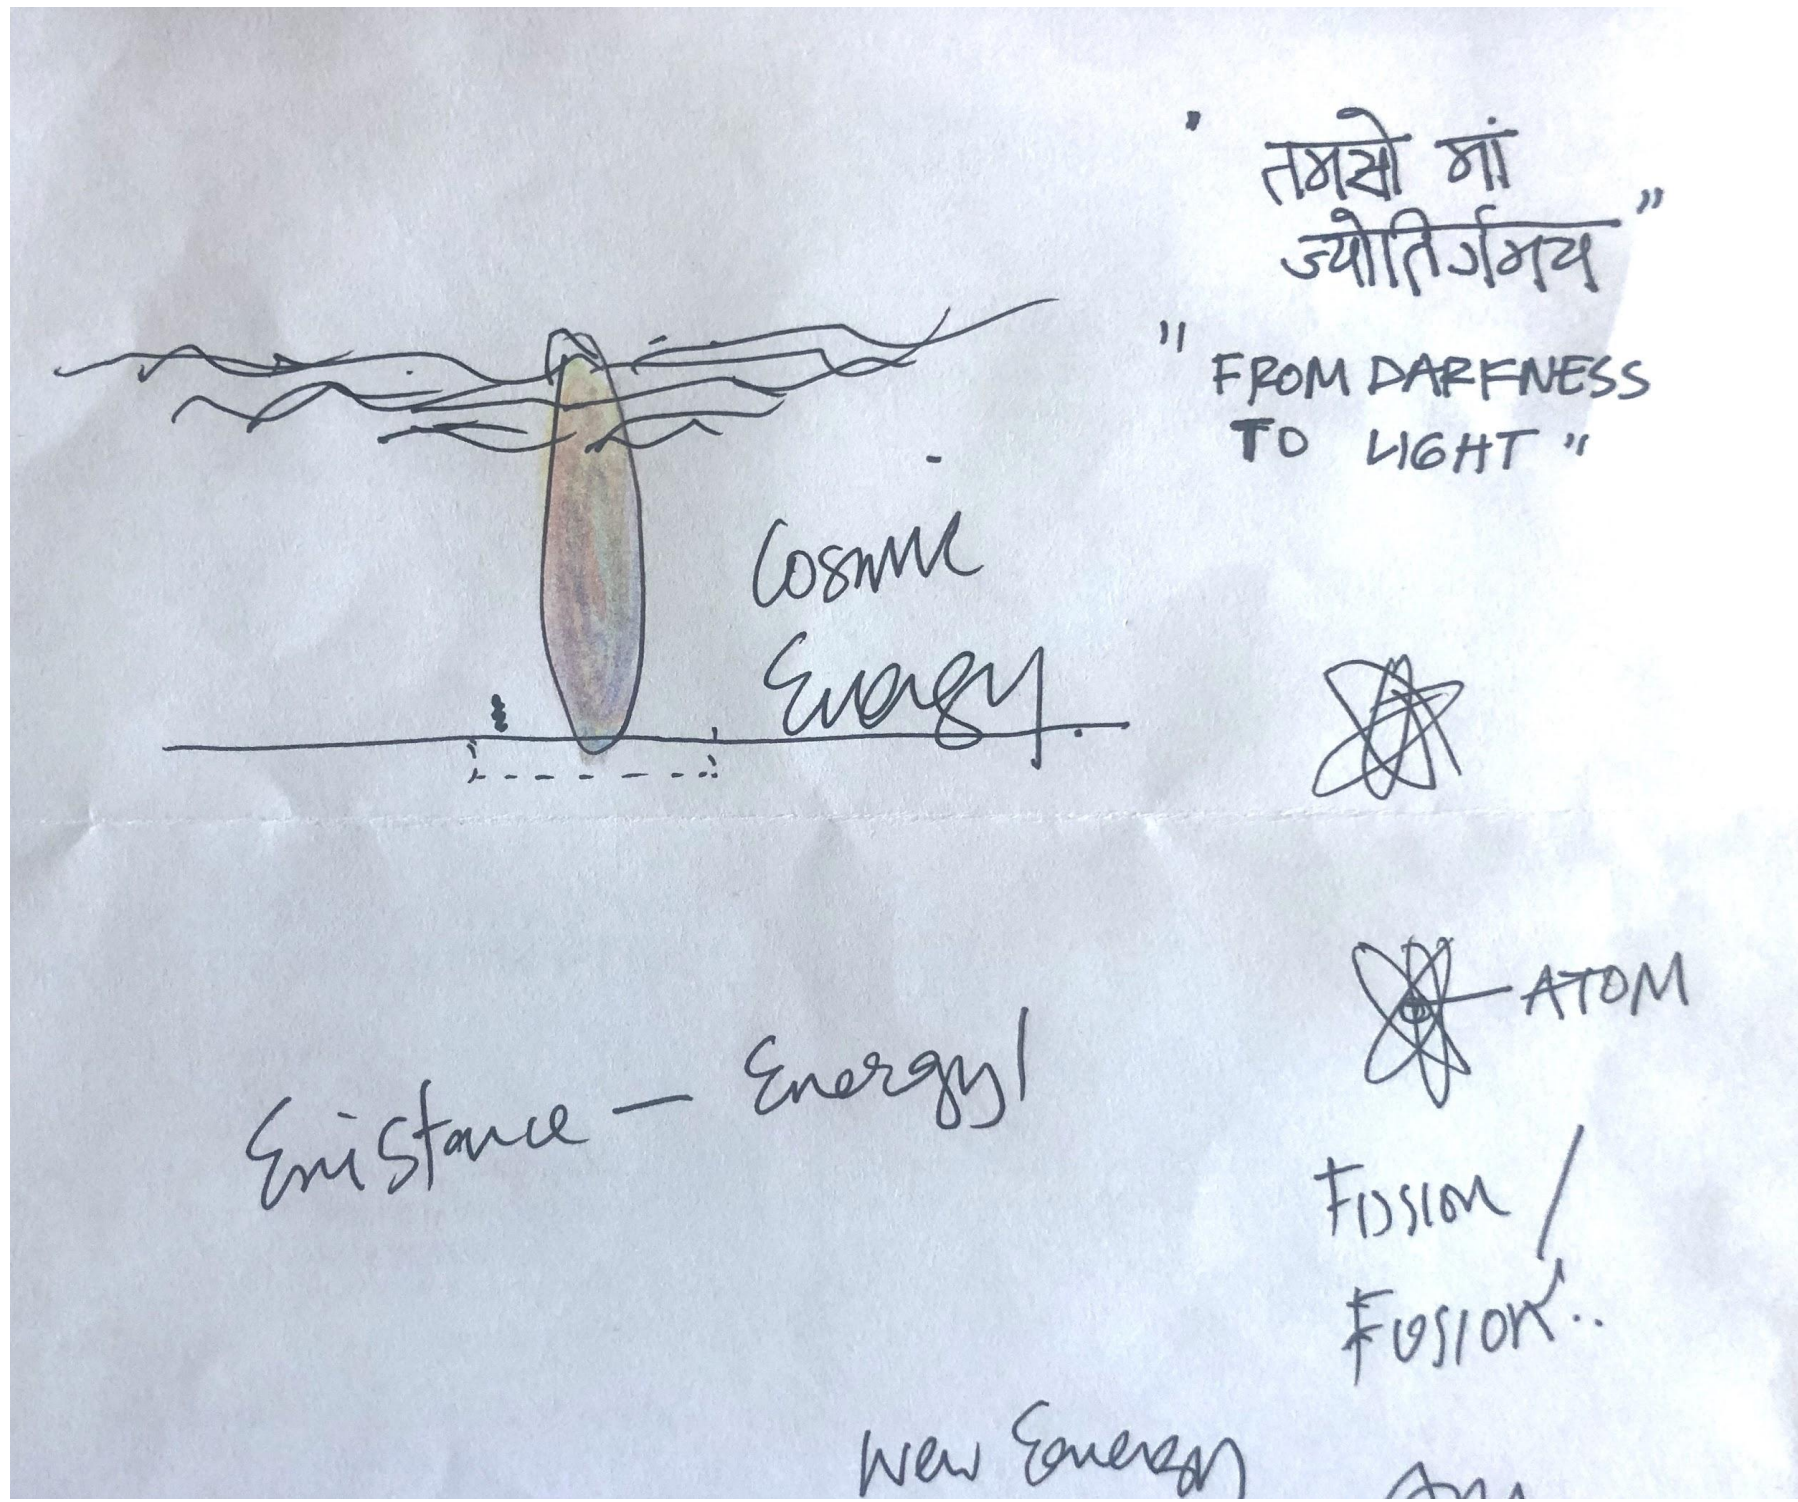 " तमसो मां
ज्योतिर्गमय "
" FROM DARKNESS
TO LIGHT "
Cosmic
Energy
ATOM
Existance — Energy
Fission /
Fusion..
New Energy